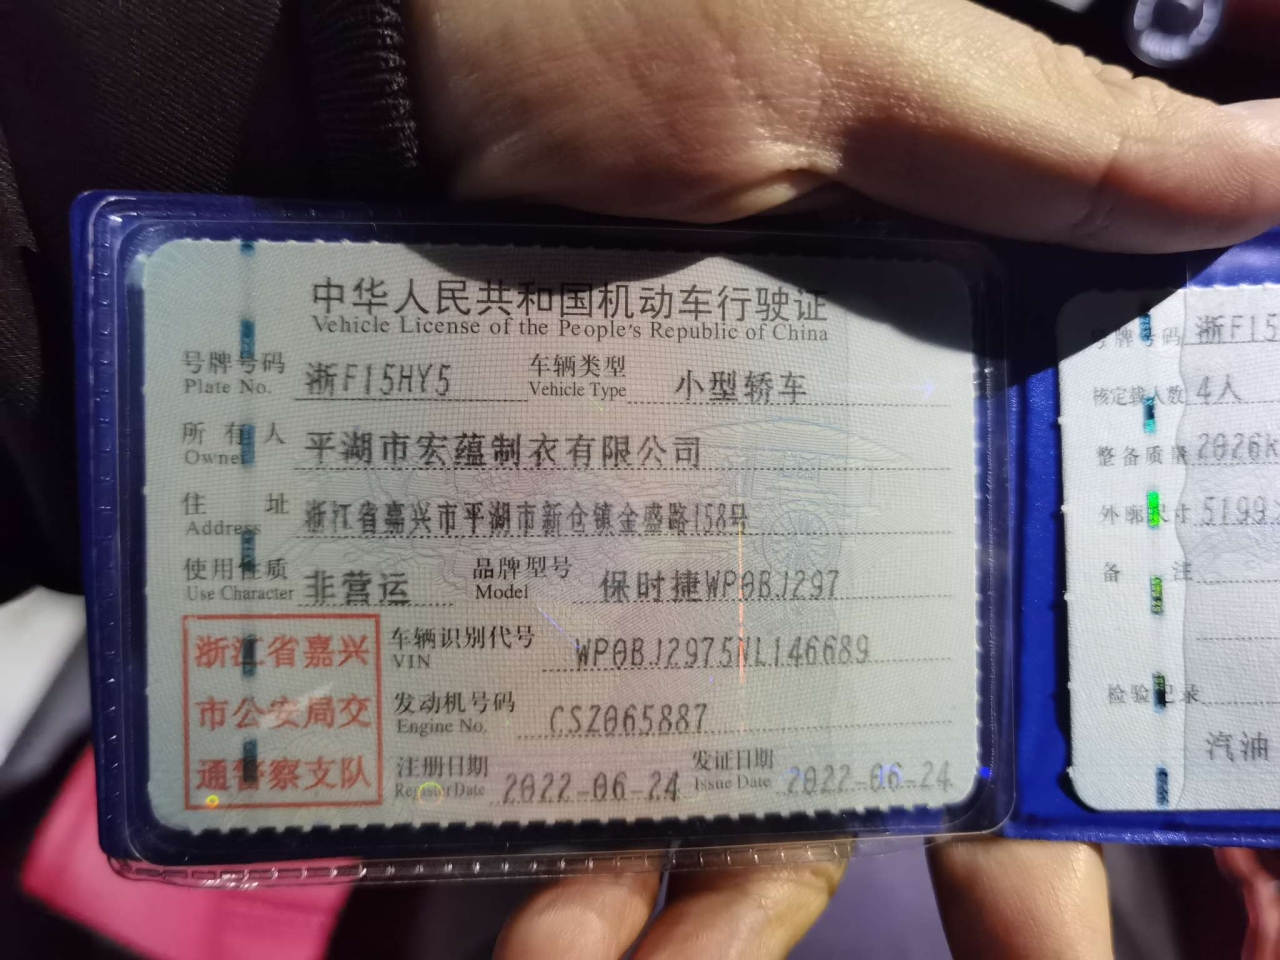 中华人民共和国机动车行驶证
Vehicle License of the People's Republic of China
号牌号码 浙F15HY5 车辆类型 小型轿车
Plate No. Vehicle Type
所有人 平湖市宏蕴制衣有限公司
Owner
住址 浙江省嘉兴市平湖市新仓镇金盛路158号
Address
使用性质 非营运 品牌型号 保时捷WP0BJ297
Use Character Model
浙江省嘉兴
市公安局交
通警察支队
车辆识别代号 WP0BJ2975NL146689
VIN
发动机号码 CSZ065887
Engine No.
注册日期 2022-06-24 发证日期 2022-06-24
Register Date Issue Date
号牌号码 浙F15
核定载人数 4人
整备质量 2026k
外廓尺寸 5199
备注
检验记录
汽油